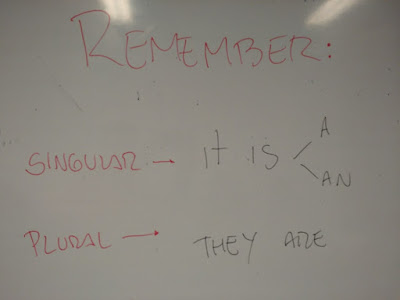 REMEMBER:
SINGULAR → it is < A
AN
PLURAL → THEY ARE